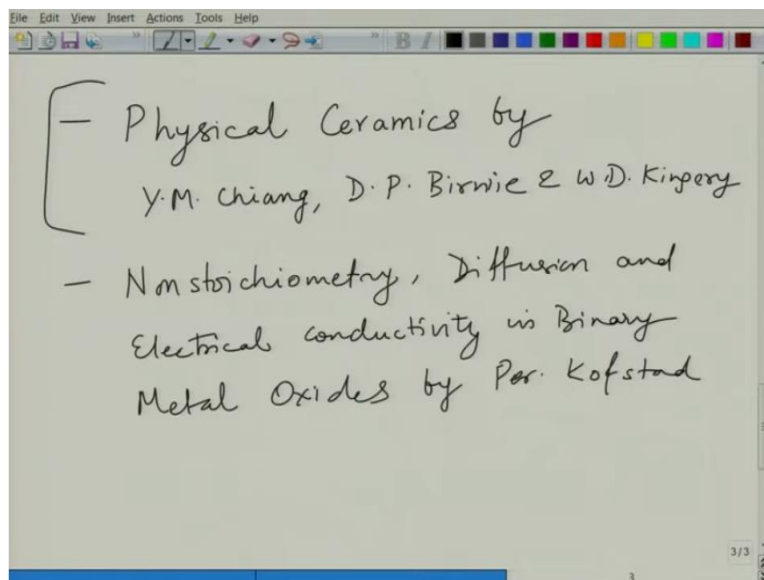 File Edit View Insert Actions Tools Help
B I
- Physical Ceramics by
Y.M. Chiang, D.P. Birnie & W.D. Kingery
- Nonstoichiometry, Diffusion and
Electrical conductivity in Binary
Metal Oxides by Per. Kofstad
3/3
3